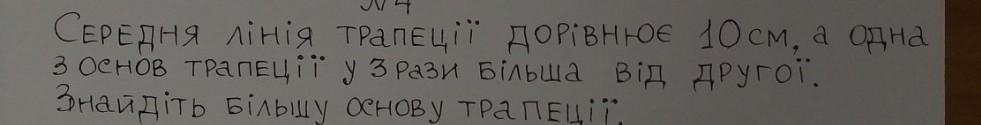 №4
Середня лінія трапеції дорівнює 10 см, а одна
з основ трапеції у 3 рази більша від другої.
Знайдіть більшу основу трапеції.